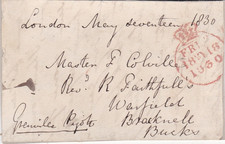 London May seventeen 1830
Master F Colvile
Revd. R Faithfull's
Warfield
Bracknell
Bucks
Grenville
FREE
18 MY 18
1830